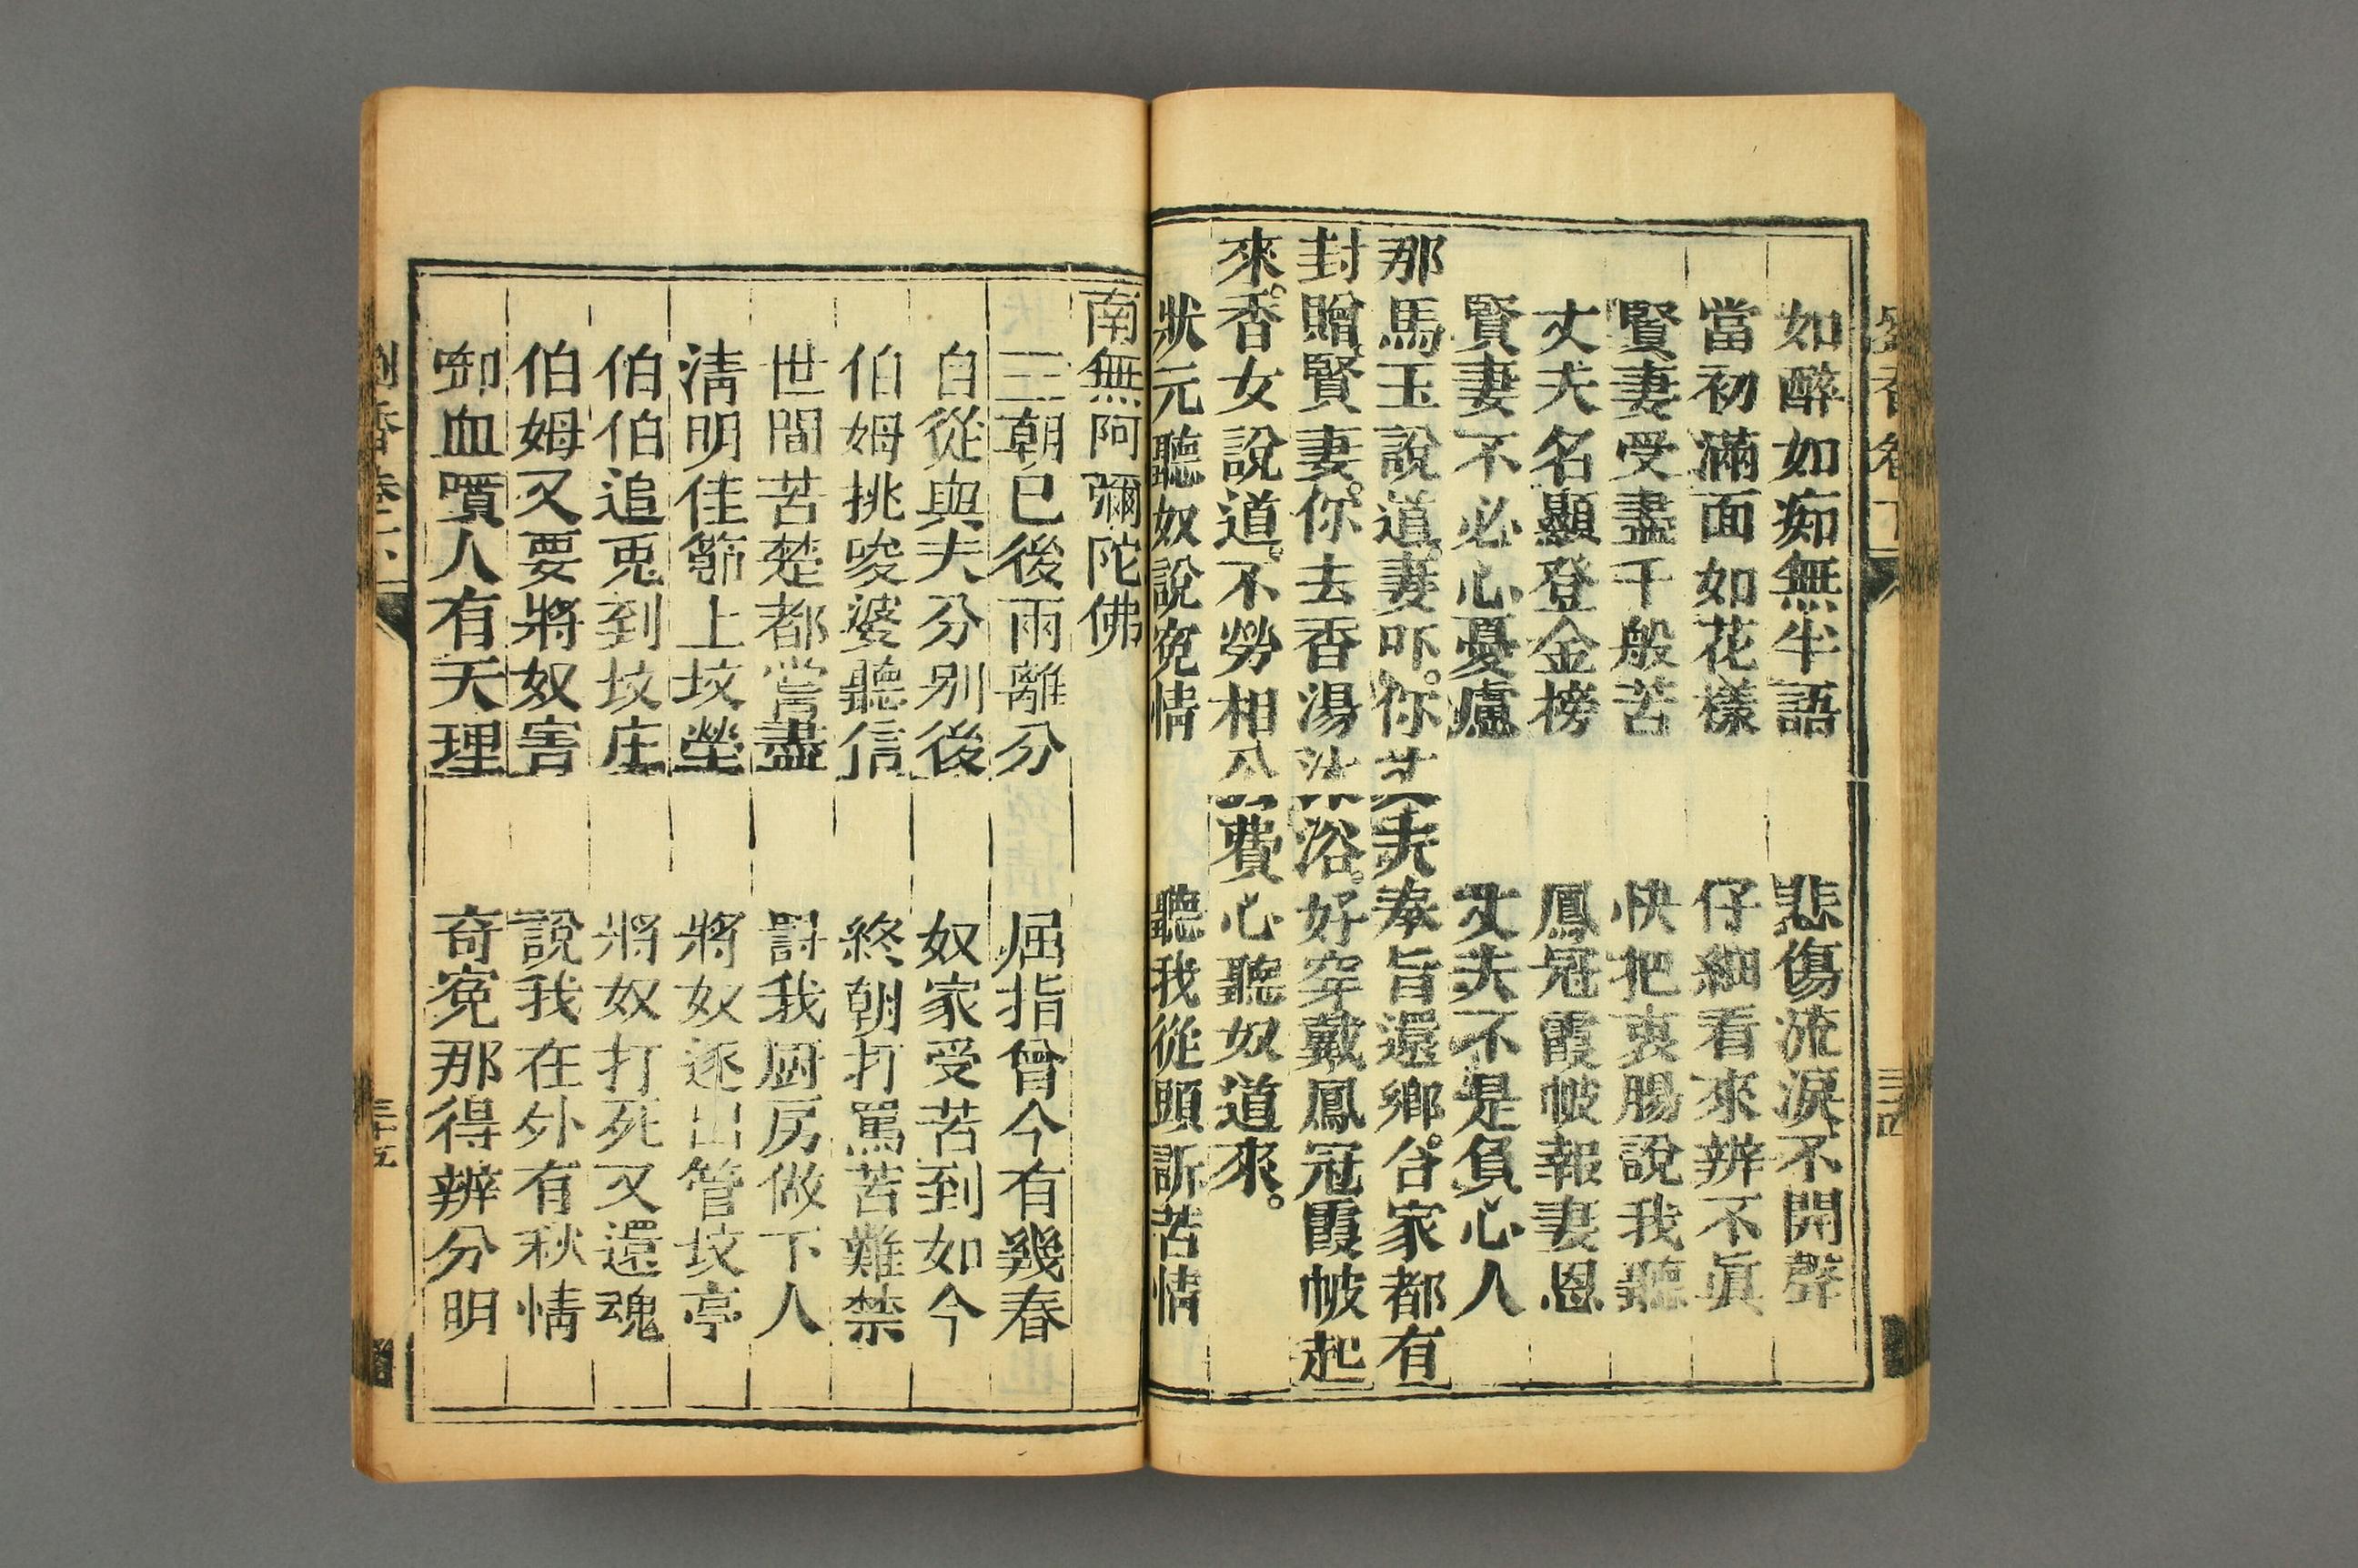 如醉如痴無半語　悲傷流淚不開聲
當初滿面如花樣　仔細看來辨不眞
賢妻受盡千般苦　快把衷腸說我聽
丈夫名顯登金榜　鳳冠霞帔報妻恩
賢妻不必心憂慮　丈夫不是負心人
那馬玉說道。妻吓。你丈夫奉旨還鄉。合家都有
封贈賢妻。你去香湯沐浴。好穿戴鳳冠霞帔起
來。香女說道。不勞相公費心聽奴道來。
狀元聽奴說寃情　聽我從頭訴苦情
南無阿彌陀佛
三朝已後兩離分　屈指曾今有幾春
自從與夫分别後　奴家受苦到如今
伯姆挑唆婆聽信　終朝打罵苦難禁
世間苦楚都嘗盡　罸我厨房做下人
淸明佳節上坟塋　將奴逐出管坟亭
伯伯追冤到坟庄　將奴打死又還魂
伯姆又要將奴害　說我在外有秋情
啣血噴人有天理　奇寃那得辨分明
三十五